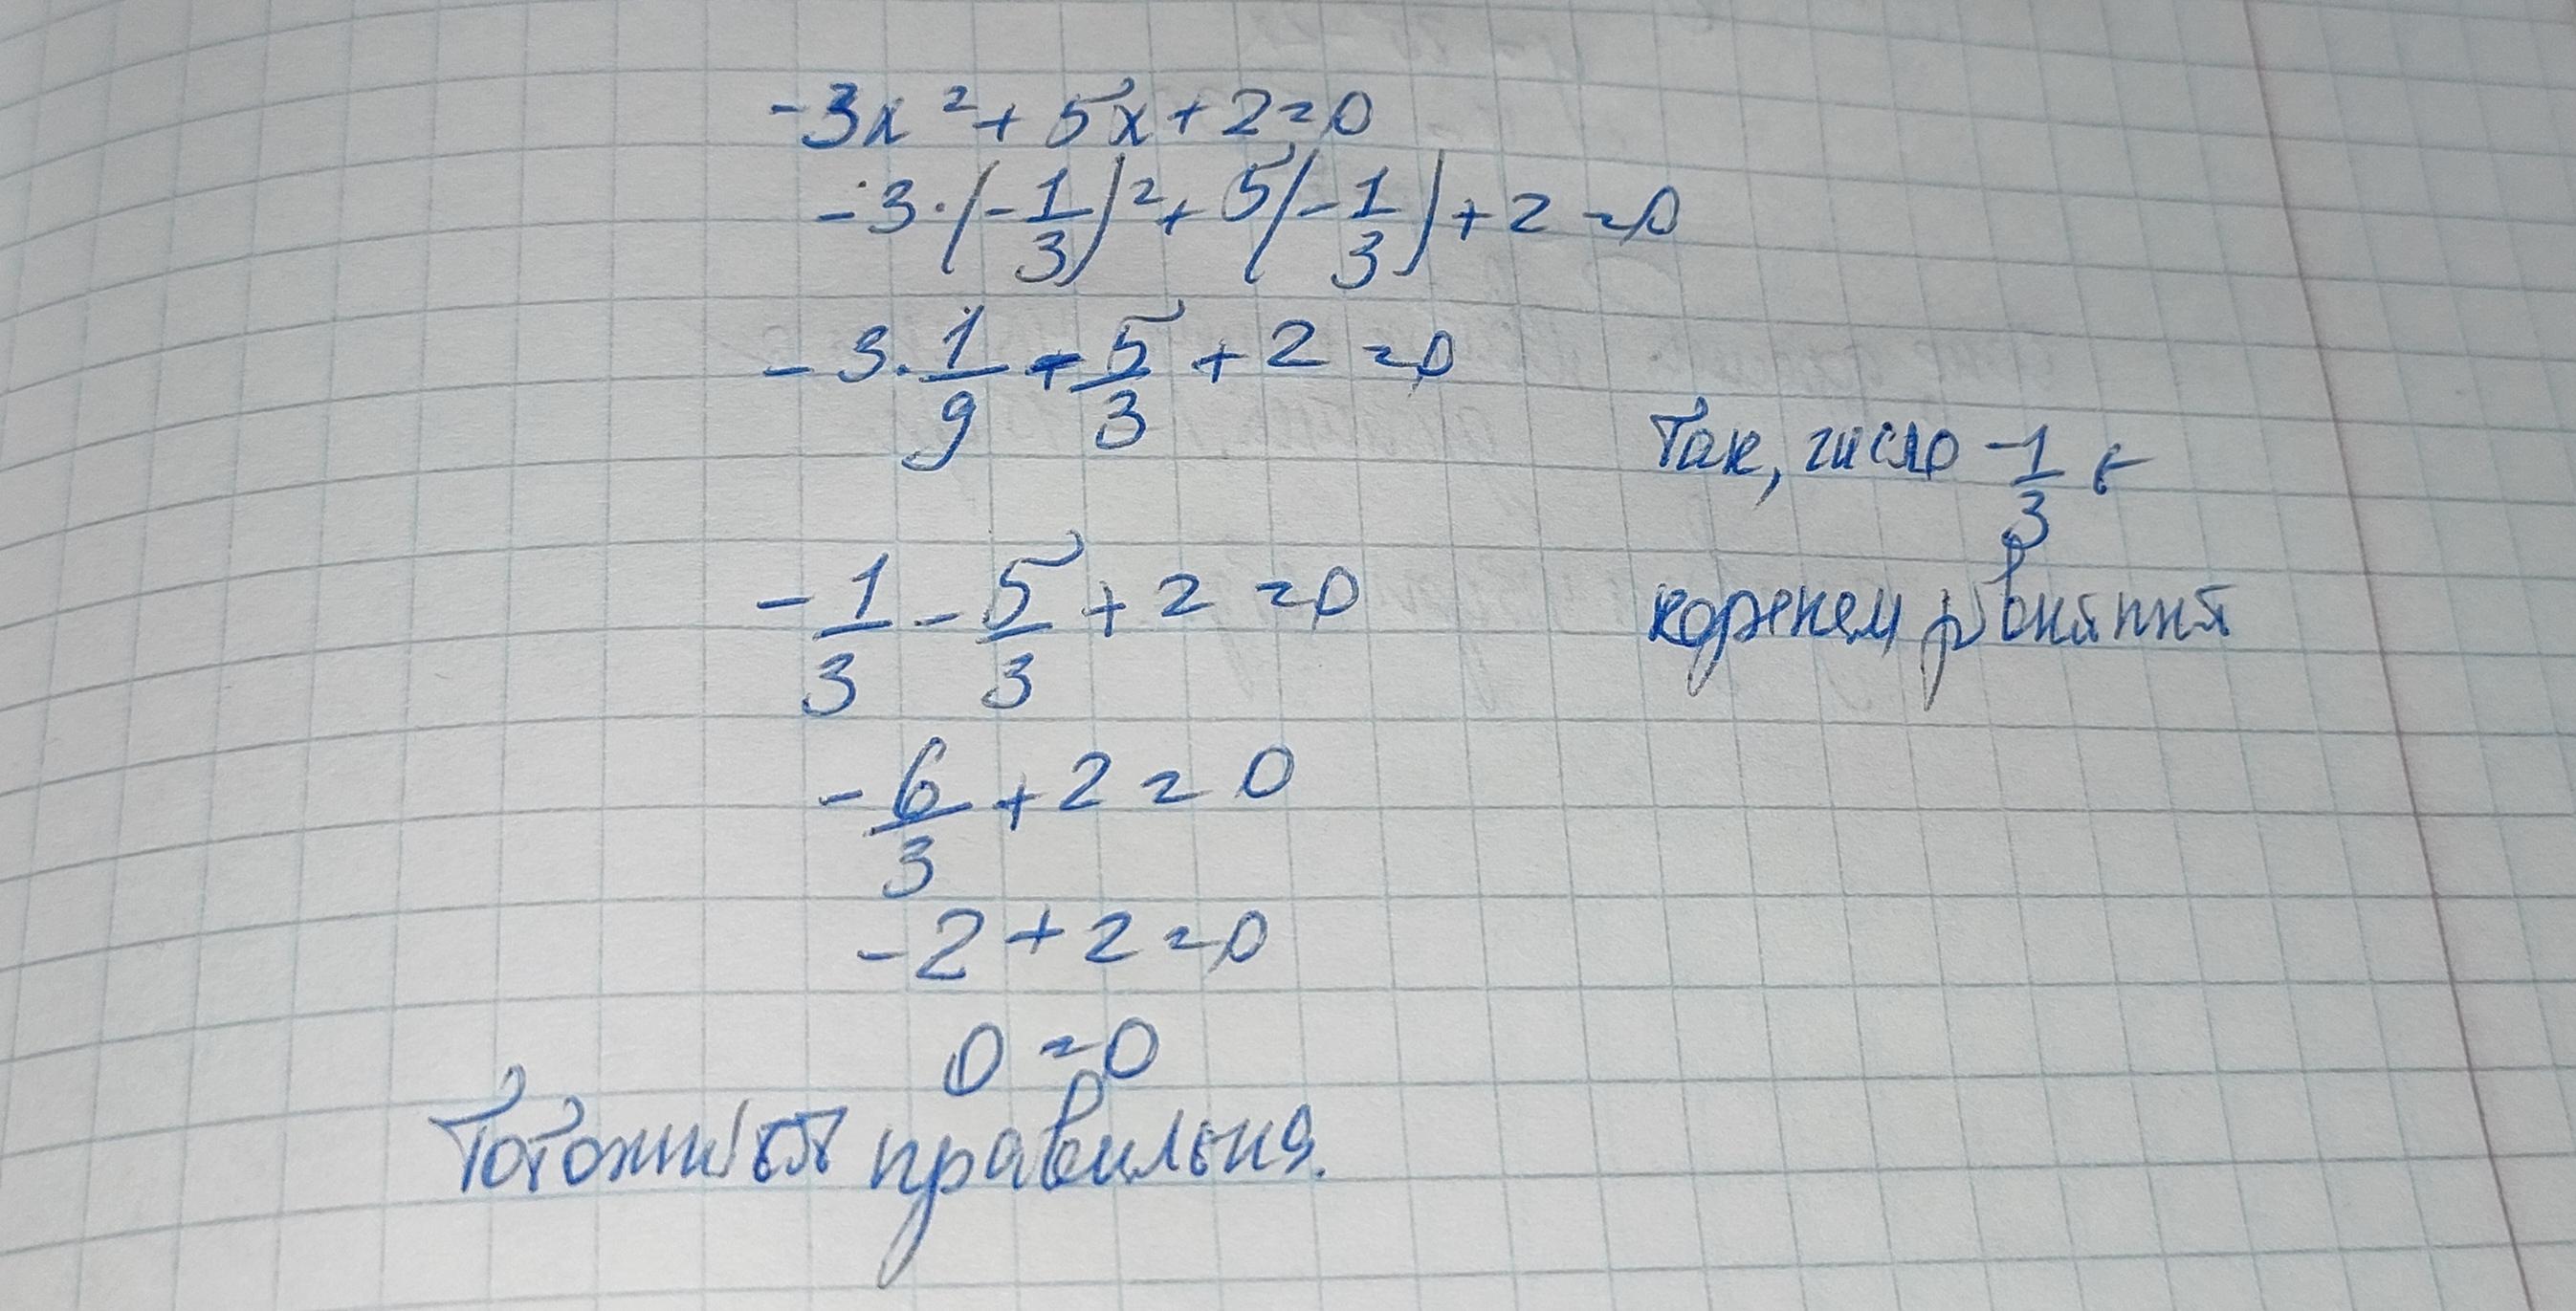 -3x² + 5x + 2 = 0
-3·(-1/3)² + 5(-1/3) + 2 = 0
-3·1/9 - 5/3 + 2 = 0
-1/3 - 5/3 + 2 = 0
-6/3 + 2 = 0
-2 + 2 = 0
0 = 0
Тотожність правильна.
Так, число -1/3 є
коренем рівняння